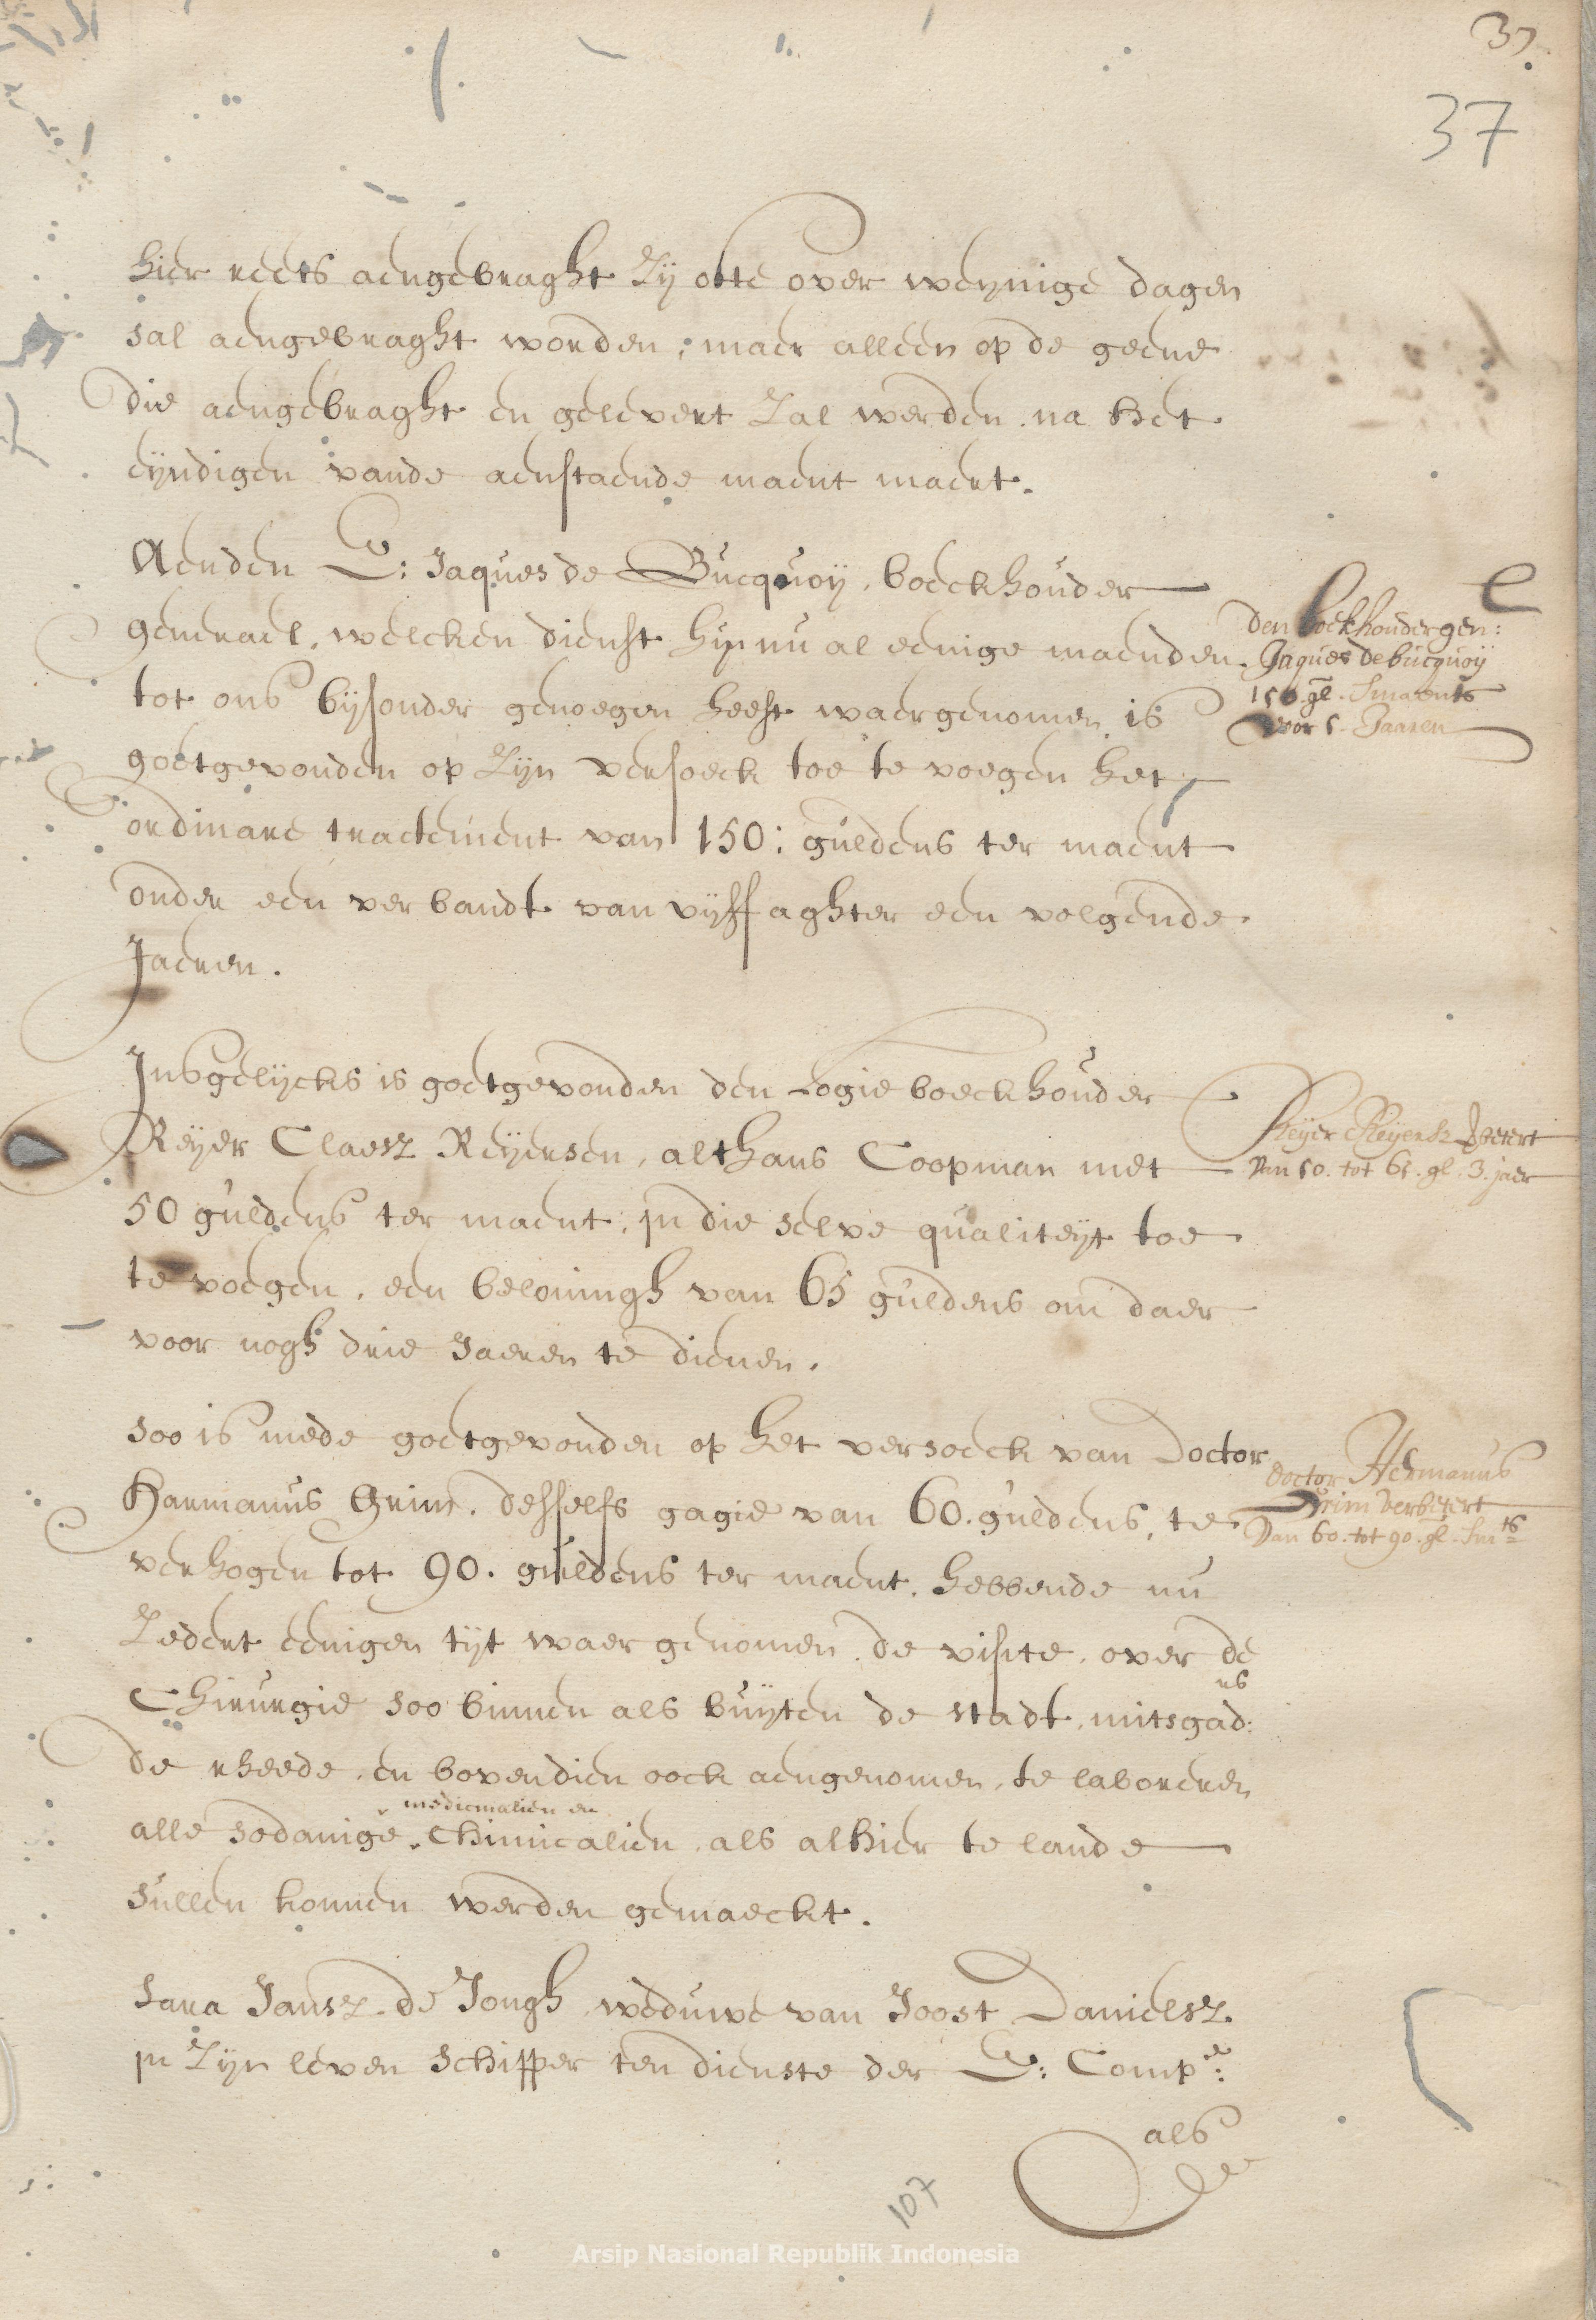 37.
37
hier reets aengebraght zij ofte over weynige dagen
sal aengebraght worden; maer alleen op de geene
die aengebraght en gelevert zal werden na het
eyndigen vande aenstaende maent maert.
Aenden E: Jaques de Bucquoij, boeckhouder
generael, welcken dienst hij nu al eenige maenden
tot ons bijsonder genoegen heeft waergenomen, is
goetgevonden op zijn versoeck toe te voegen het
ordinare tractement van 150: guldens ter maent
onder een verbandt van vijff aghter een volgende
Jaeren.
den boekhouder gen:
Jaques de bucquoij
150 gl. smaents
voor 5. Jaaren
Insgelijcks is goetgevonden den Logie boeckhouder
Reijer Claesz Reijersen, althans Coopman met
50 guldens ter maent, in die selve qualiteijt toe
te voegen, een beloningh van 65 guldens om daer
voor nogh drie Jaeren te dienen.
Reijer Reijersz
van 50. tot 65. gl. 3. jaer
Soo is mede goetgevonden op het versoeck van Doctor
Harmanus Grim, desselfs gagie van 60. guldens, te
verhogen tot 90. guldens ter maent, hebbende nu
zedert eenigen tijt waergenomen, de visite, over de
Chirurgie soo binnen als buijten de stadt, mitsgad:rs
de rheede, en bovendien oock aengenomen, te laboreren
medicinalien en
alle sodanige Chimicalien, als alhier te lande
sullen konnen werden gemaeckt.
doctor Hermanus
Grim verbetert
van 60. tot 90. gl. Smts
Sara Jansz. de Jongh, weduwe van Joost Danielsz.
in zijn leven schipper ten dienste der E: Compe:
als
107
Arsip Nasional Republik Indonesia